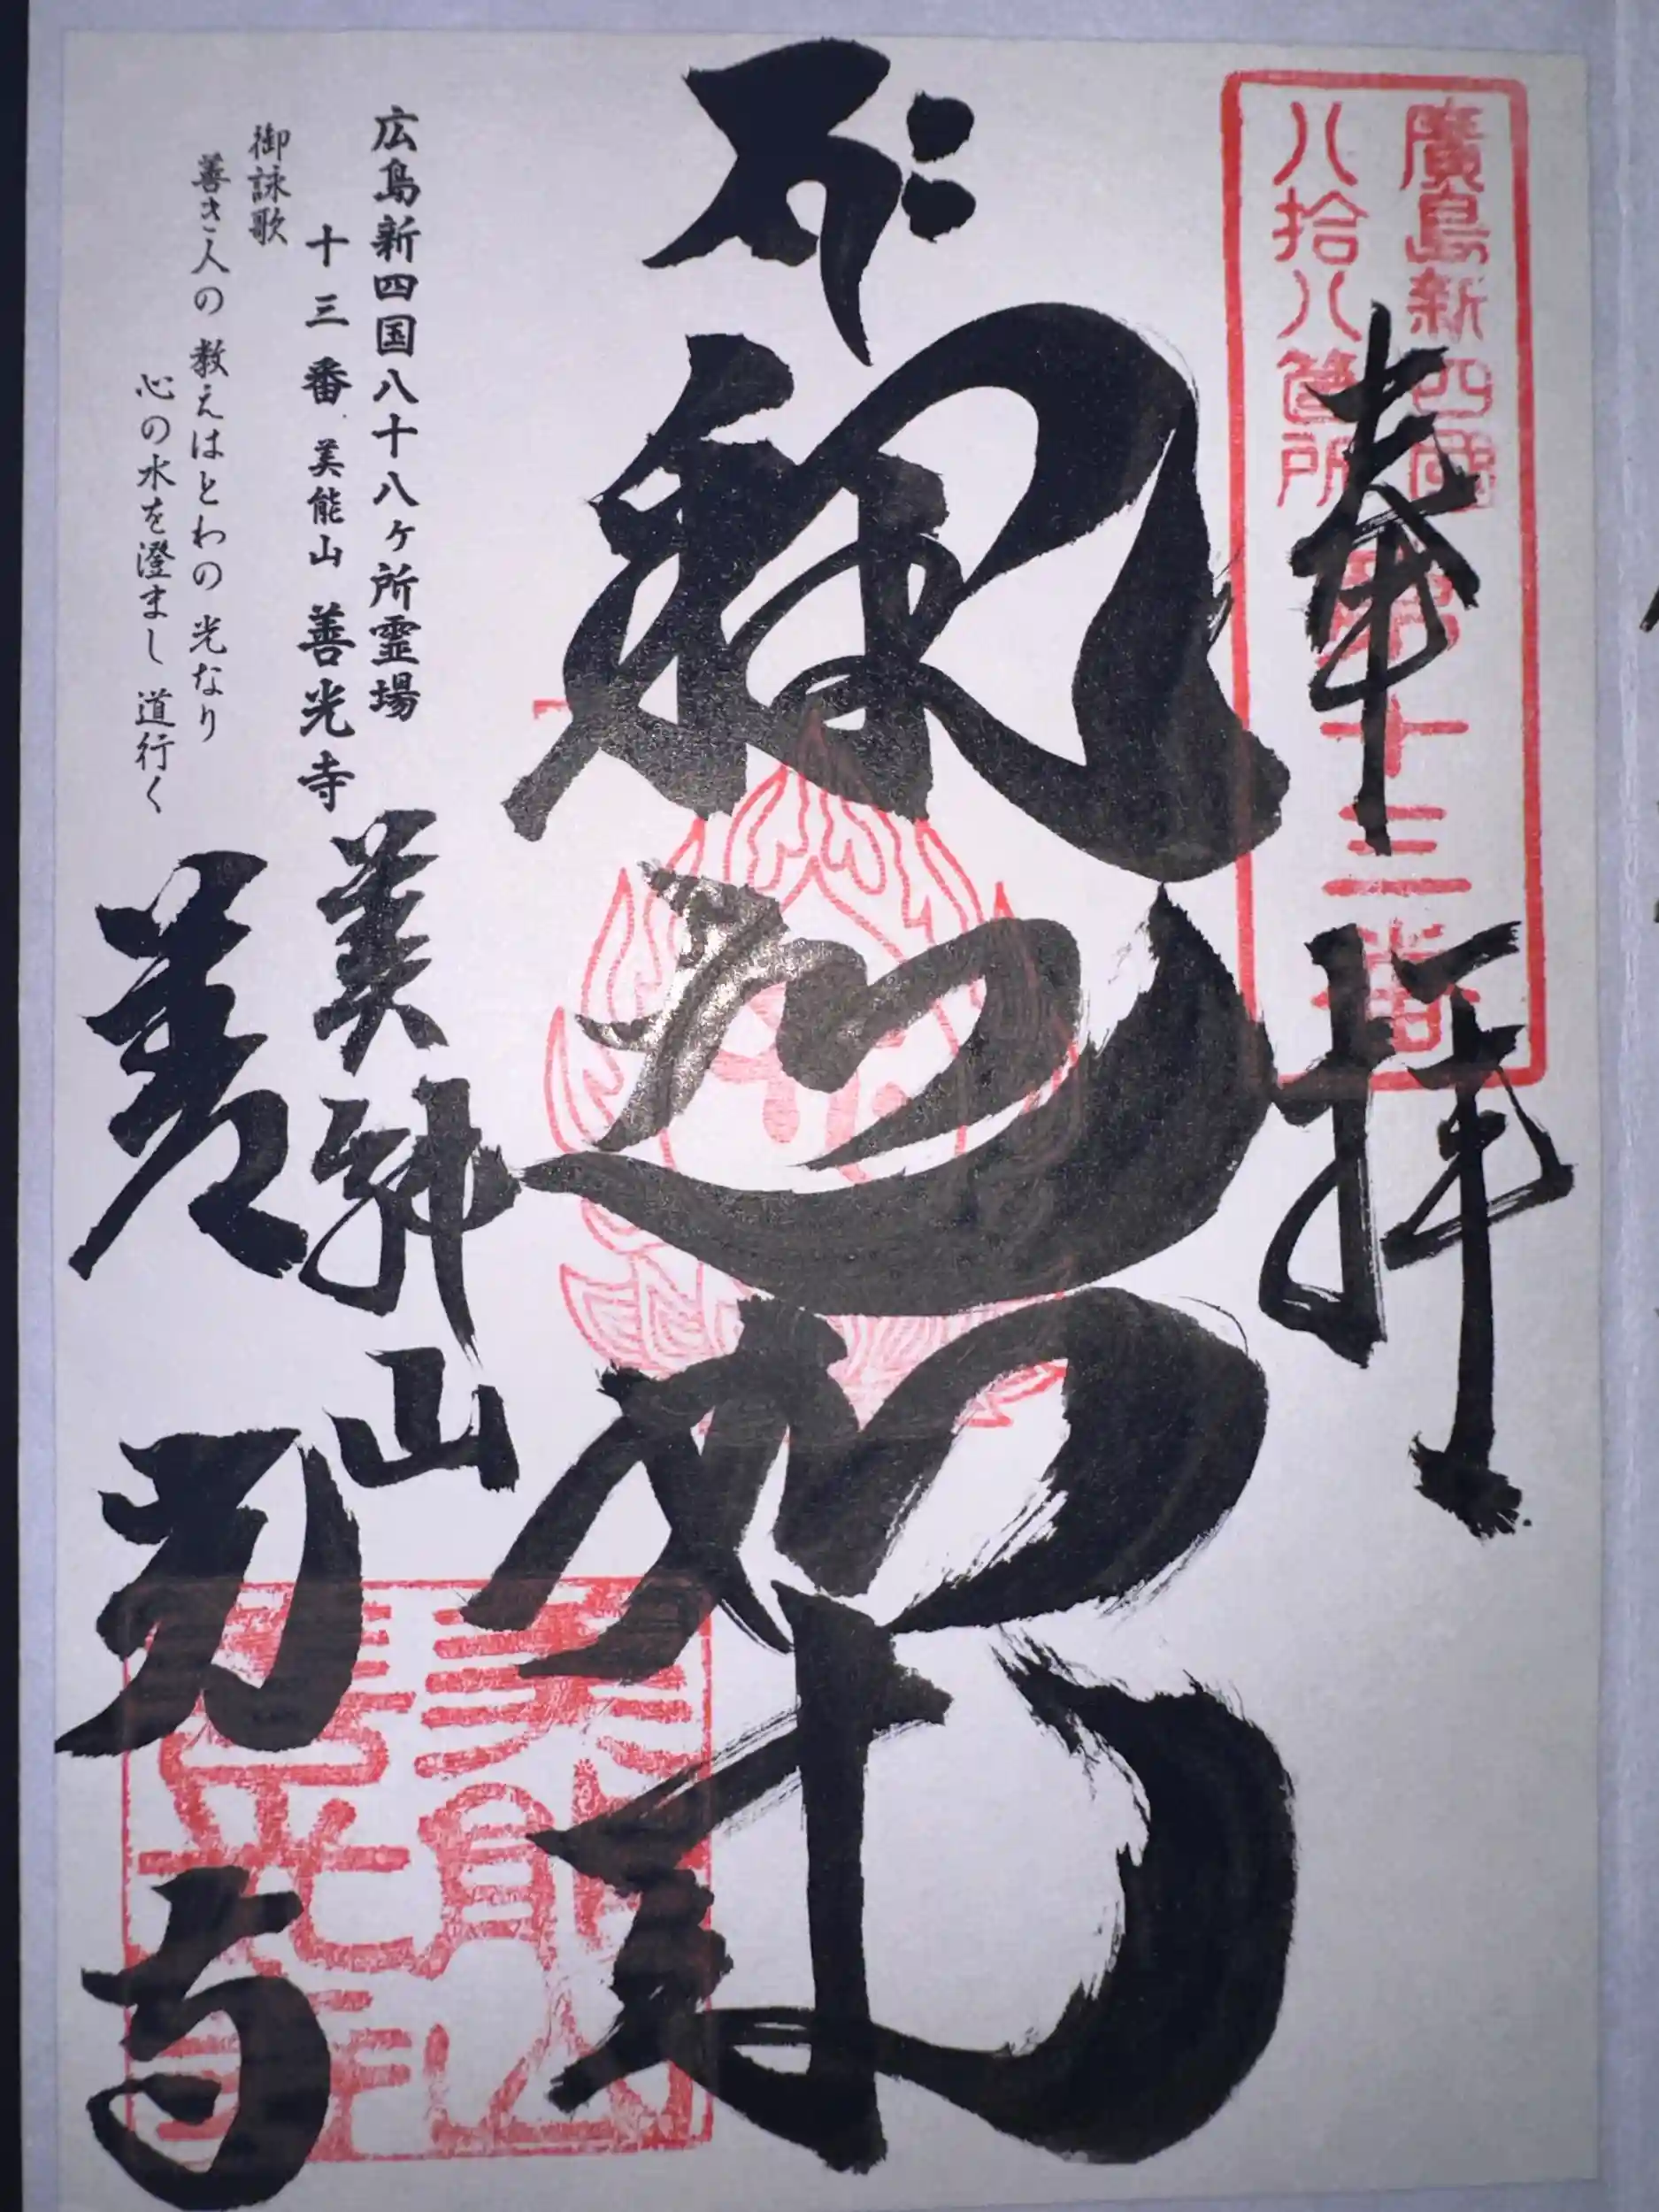 廣島新四國
八拾八箇所
第十三番
奉拝
弥陀如来
広島新四国八十八ヶ所霊場
十三番 美能山 善光寺
御詠歌
善き人の 教えはとわの 光なり
心の水を澄まし 道行く
美能山
善光寺
美能山
善光寺